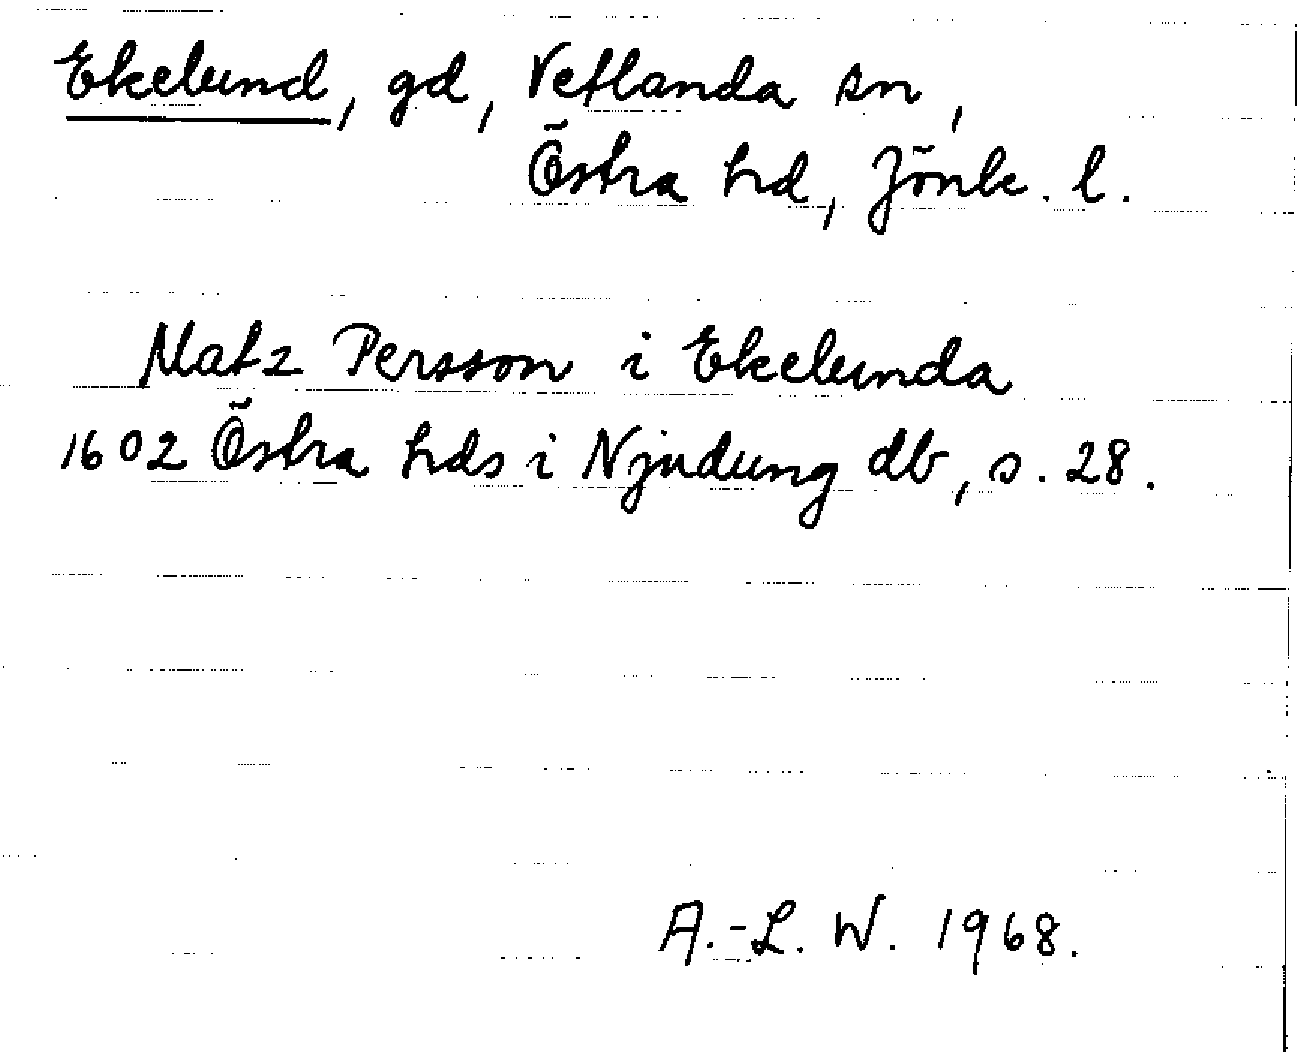 Ekelund, gd, Vetlanda sn,
Östra hd, Jönk. l.
Matz Persson i Ekelunda
1602 Östra hds i Njudung db, s. 28.
A.-L. W. 1968.